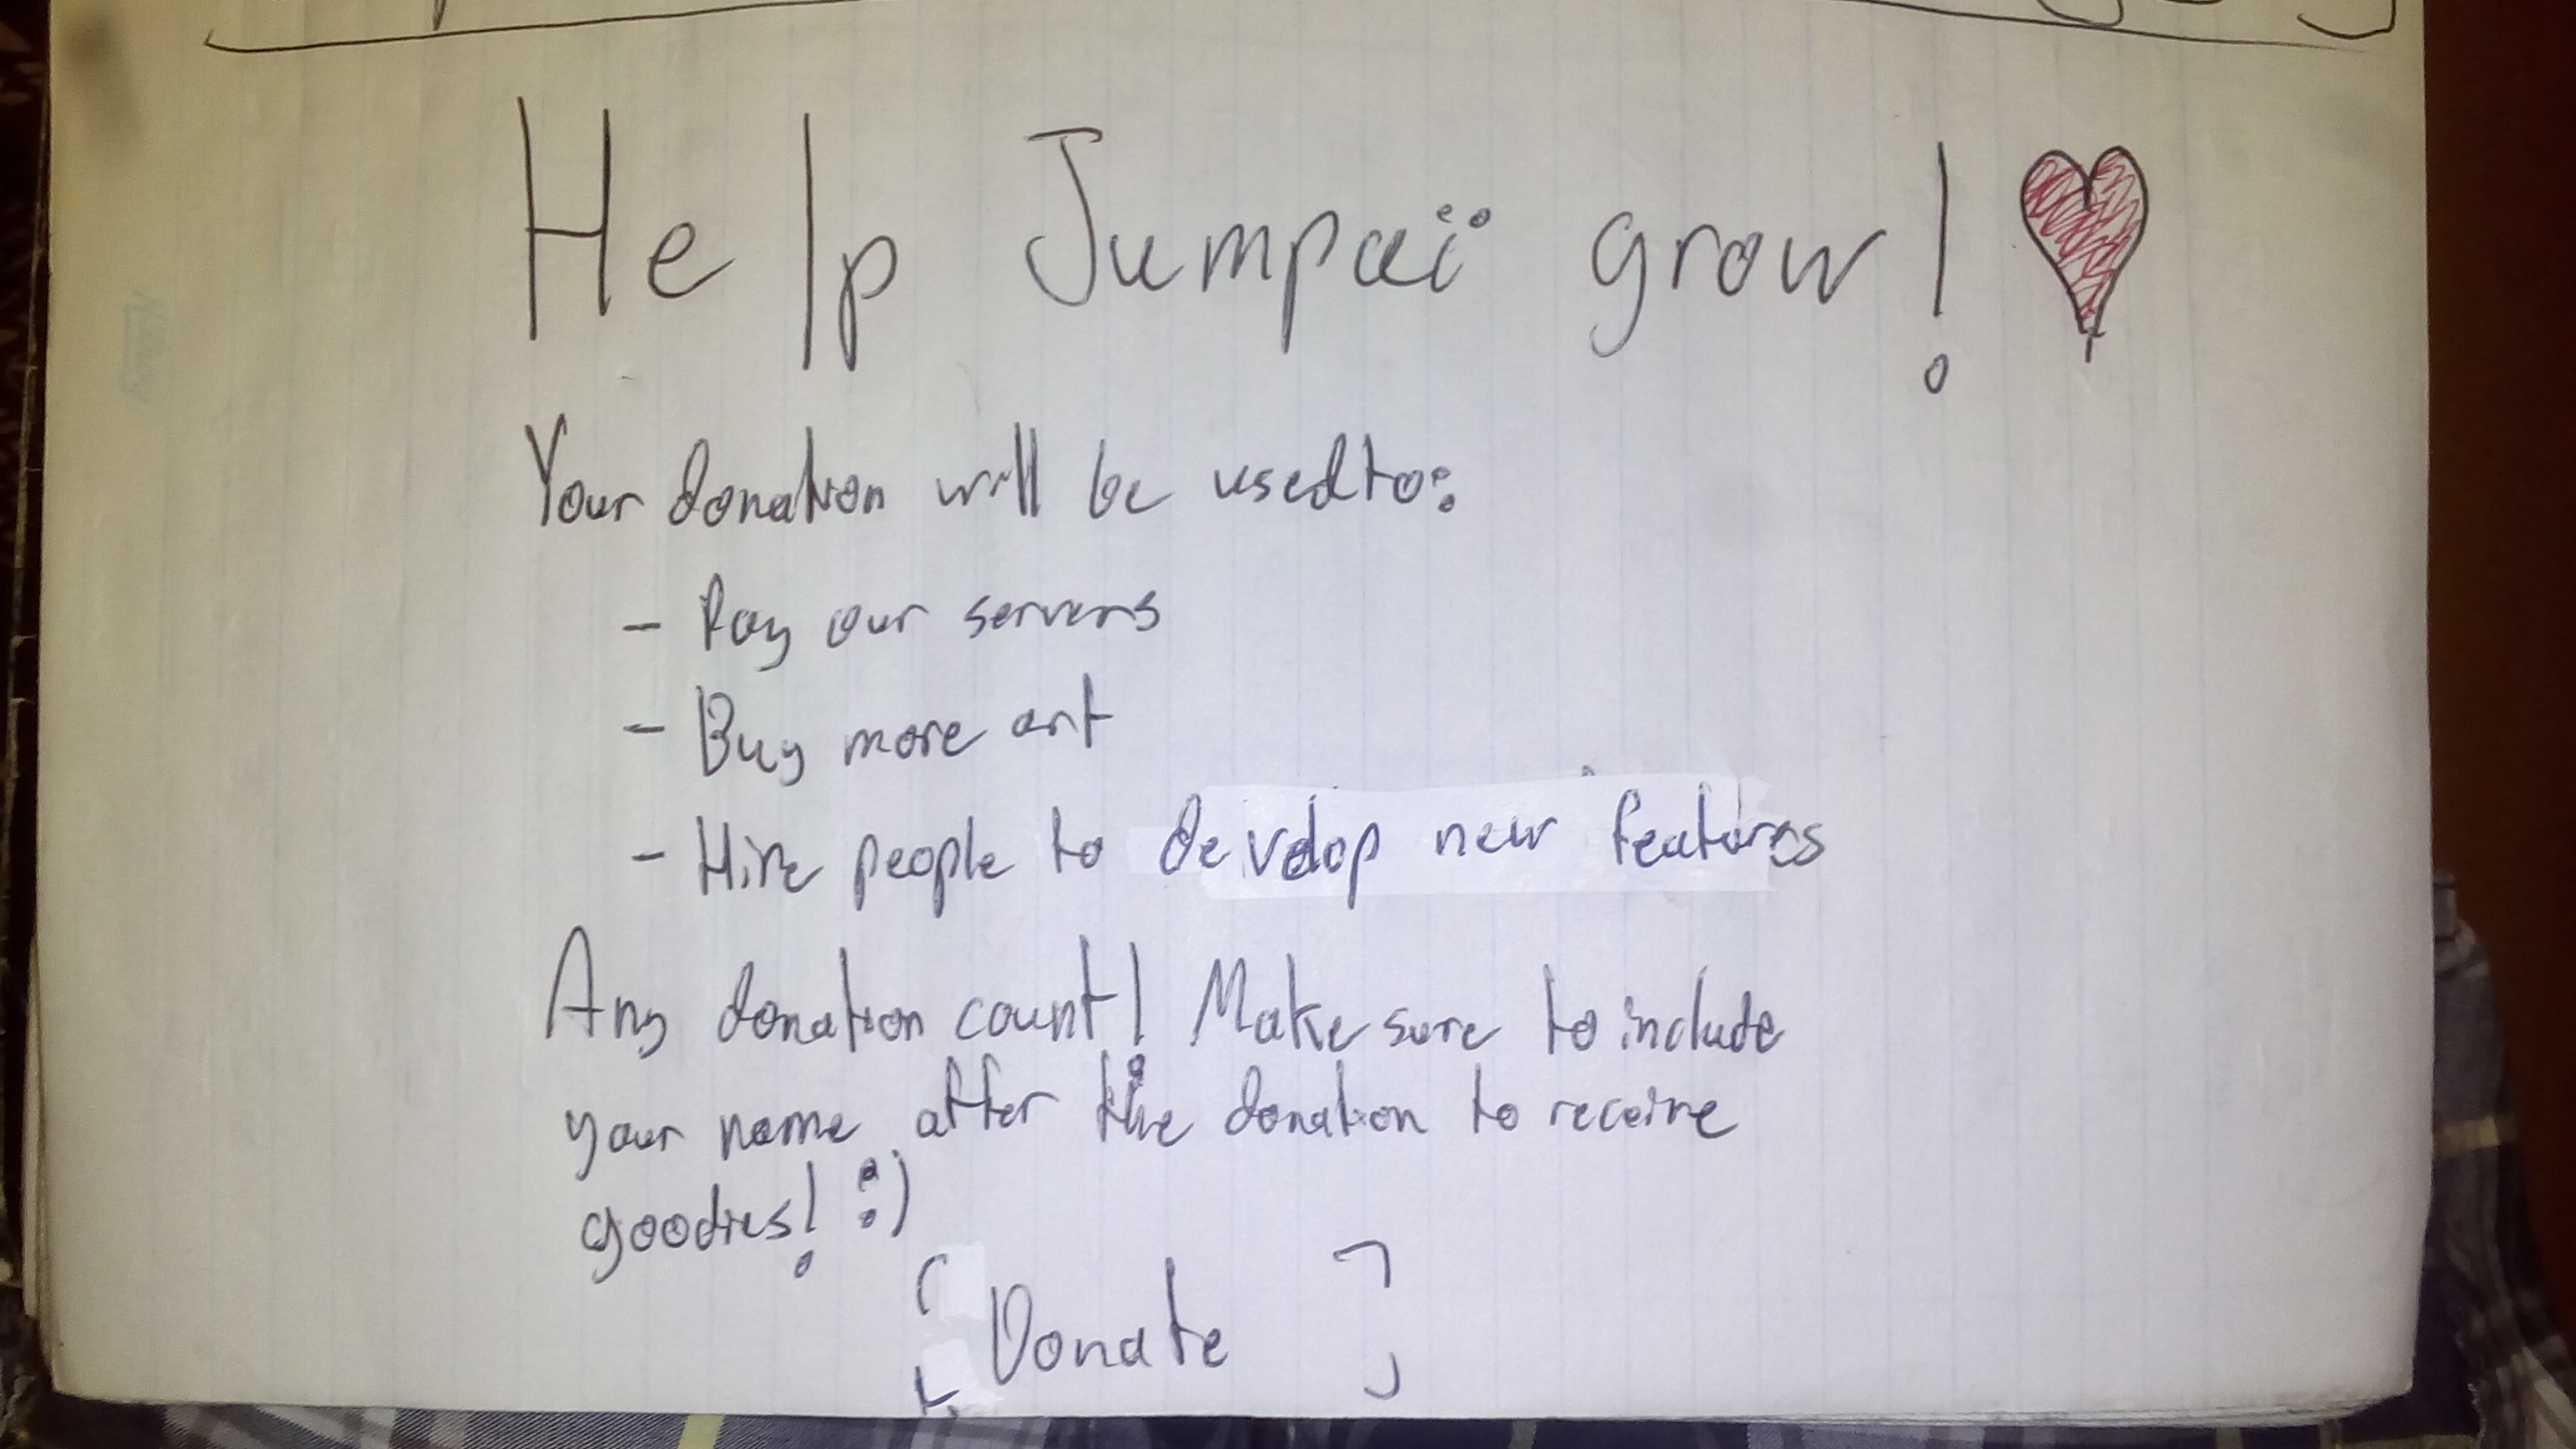 Help Jumpaï grow!
Your donation will be used to:
- Pay our servers
- Buy more art
- Hire people to develop new features
Any donation count! Make sure to include
your name after the donation to receive
goodies! :)
[Donate]